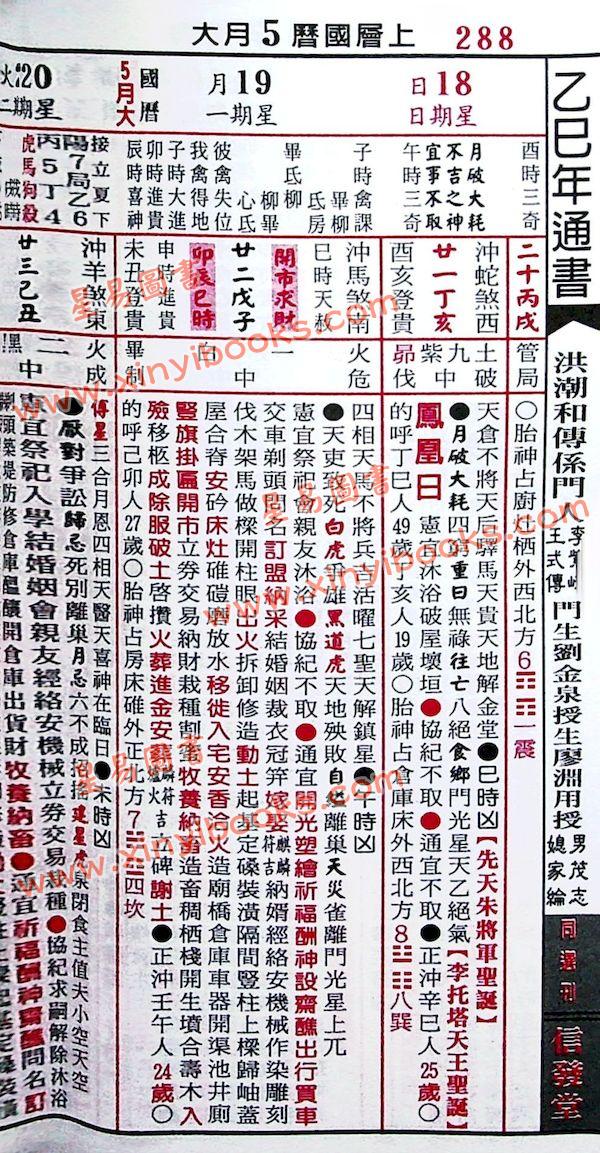 大月5曆國層上 288
乙巳年通書
洪潮和傳係門人
王式傳
門生劉金泉授生廖淵用授
男茂志
媳家綸
同選刊
信發堂
日18
日期星
月19
一期星
國曆
5月大
20
二期星
酉時三奇
月破大耗
不吉之神
宜事不取
午時三奇
子時禽課
畢柳
氐房
畢氐柳
柳畢
心氐
彼禽失位
我禽得地
子時大進
卯時進貴
辰時喜神
接立夏下
陽7局乙6
丙5丁4
虎馬狗殺
二十丙戌
沖蛇煞西
廿一丁亥
酉亥登貴
沖馬煞南
巳時天赦
開市求財
廿二戊子
卯辰巳時
申時進貴
未丑登貴
沖羊煞東
廿三乙丑
管局
土破
九
紫中
昴伐
火危
一
白中
畢制
火成
二
黑中
○胎神占廚灶栖外西北方6 一震
天倉不將天后驛馬天貴天地解金堂●巳時凶【先天朱將軍聖誕】
●月破大耗四窮重日無祿往亡八絕食鄉門光星天乙絕氣【李托塔天王聖誕】
鳳凰日 憲宜沐浴破屋壞垣●協紀不取●通宜不取●正沖辛巳人25歲○
的呼丁巳人49歲丁亥人19歲○胎神占倉庫床外西北方8 八巽
四相天馬不將兵吉活曜七聖天解鎮星●午時凶
●天吏致死白虎 雄黑道虎 天地殃敗自縊離巢天災雀離門光星上元
憲宜祭祀會親友沐浴●協紀不取●通宜開光塑繪祈福酬神設齋醮出行買車
交車剃頭問名訂盟納采結婚姻裁衣冠笄嫁娶麒麟符吉納婿經絡安機械作染雕刻
伐木架馬做樑開柱眼出火拆卸修造動土起基定磉裝潢隔間豎柱上樑歸岫蓋
屋合脊安砛床灶碓磑磨放水移徙入宅安香淦火造廟橋倉庫車器開渠池井廁
豎旗掛匾開市立券交易納財栽種割蜜牧養納畜造畜稠栖棧開生墳合壽木入
殮移柩成除服破土啓攢火葬進金安葬麟符吉立碑謝土●正沖壬午人24歲○
的呼己卯人27歲○胎神占房床碓外正北方7 四坎
傅星三合月恩四相天醫天喜神在臨日●未時凶
●厭對爭訟歸忌死別離巢月忌六不成招搖建星虎泉閉食主值夫小空天空
憲宜祭祀入學結婚姻會親友經絡安機械立券交易栽種●協紀求嗣解除沐浴
剃頭築堤防修倉庫醞釀開倉庫出貨財牧養納畜●通宜祈福酬神齋醮問名訂